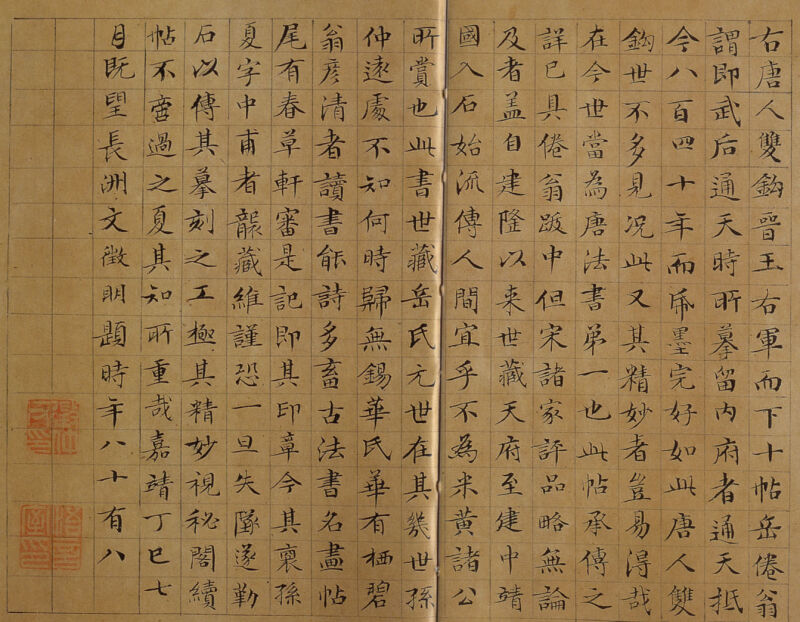 右唐人雙鈎晉王右軍而下十帖岳倦翁
謂即武后通天時所摹留内府者通天抵
今八百四十年而帋墨完好如此唐人雙
鈎世不多見況此又其精妙者豈易得哉
在今世當為唐法書第一也此帖承傳之
詳已具倦翁跋中但宋諸家評品略無論
及者盖自建隆以来世藏天府至建中靖
國入石始流傳人間宜乎不為米黄諸公
所賞也此書世藏岳氏元世在其幾世孫
仲遠處不知何時歸無錫華氏華有栖碧
翁彦清者讀書能詩多畜古法書名畫帖
尾有春草軒審是記即其印章今其裔孫
夏字中甫者襲藏維謹恐一旦失墜遂勒
石以傳其摹刻之工極其精妙視秘閣續
帖不啻過之夏其知所重哉嘉靖丁巳七
月既望長洲文徴明題時年八十有八